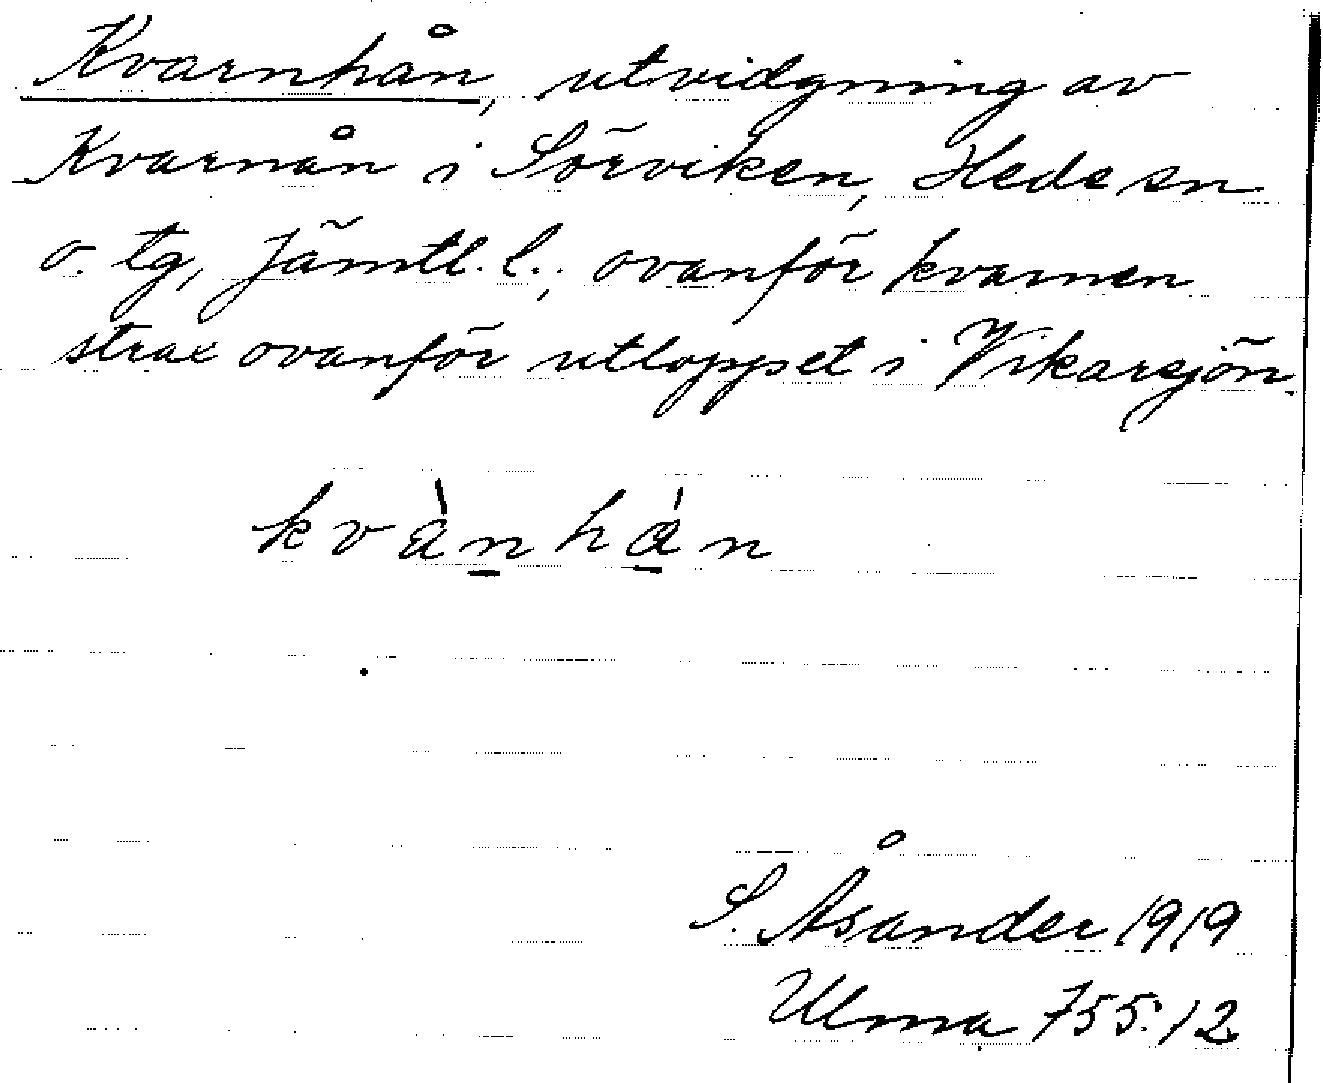 Kvarnhån, utvidgning av
Kvarnån i Sörviken, Hede sn
o. tg, Jämtl. l.; ovanför kvarnen
strax ovanför utloppet i Vikarsjön.
kvànhán
S. Åsander 1919
Ulma 755:12